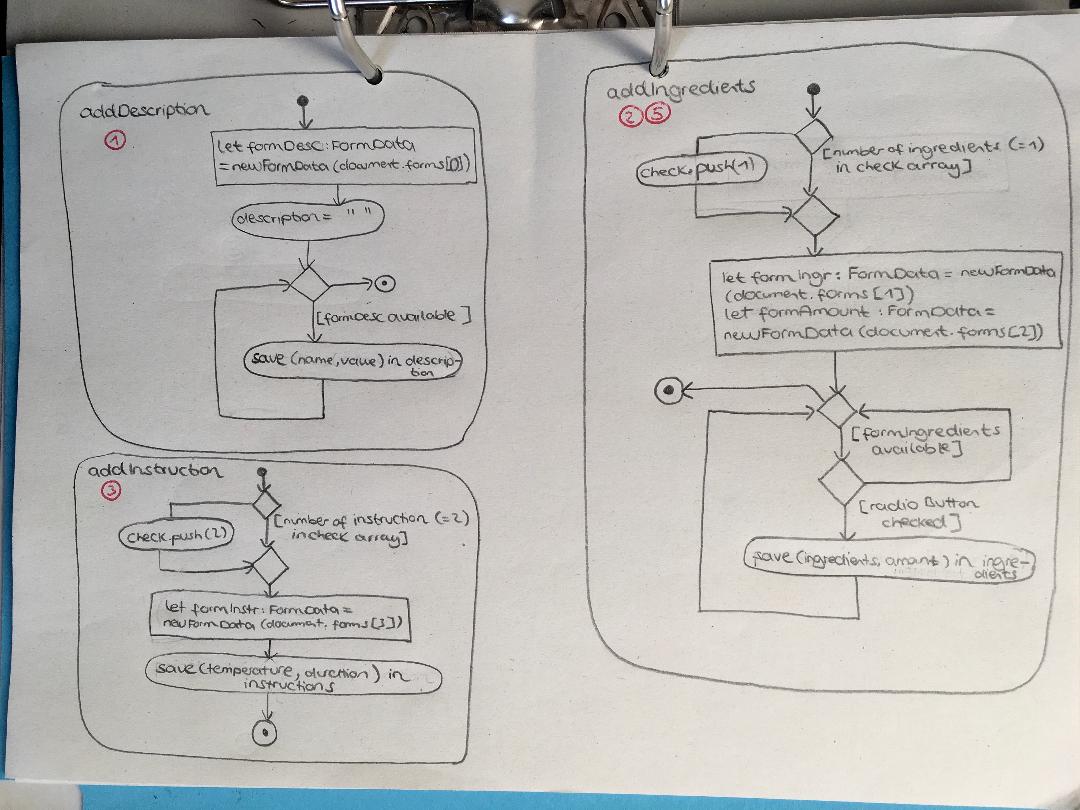 addDescription
1
let formDesc:FormData
=newFormData(document.forms[0])
description= " "
[formDesc available]
save (name,value) in descrip-
tion
addInstruction
3
[number of instruction (=2)
in check array]
check.push(2)
let formInstr: FormData =
newFormData (document.forms[3])
save (temperature, duration) in
instructions
addIngredients
2 5
[number of ingredients (=1)
in check array]
check.push(1)
let formIngr : FormData = newFormData
(document.forms[1])
let formAmount : FormData =
newFormData (document.forms[2])
[formIngredients
available]
[radio Button
checked]
save (ingredients, amount) in ingre-
dients